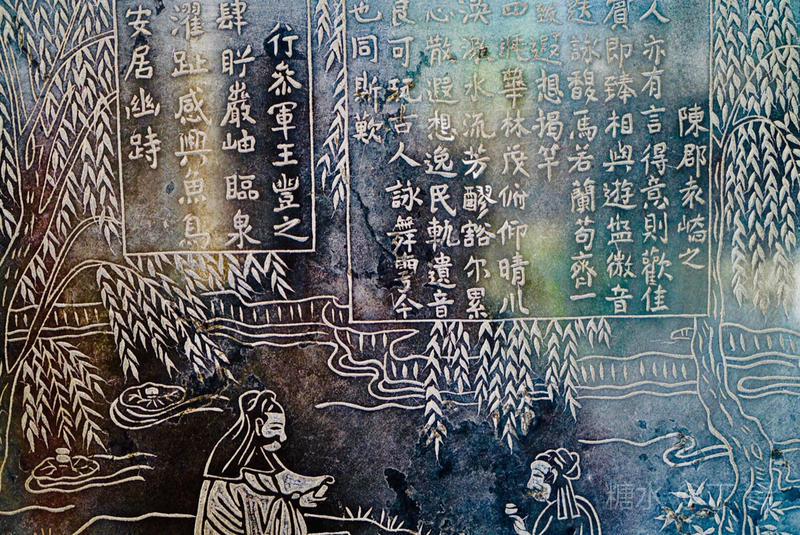 陳郡袁嶠之
人亦有言得意則歡佳
賓即臻相與遊盤微音
迭詠馥焉若蘭苟齊一
致遐想揭竿
四眺華林茂俯仰晴川
渙激水流芳醪豁尔累
心散遐想逸民軌遺音
良可玩古人詠舞雩今
也同斯歎
行叅軍王豐之
肆眝巖岫臨泉
濯趾感興魚鳥
安居幽跱
糖水